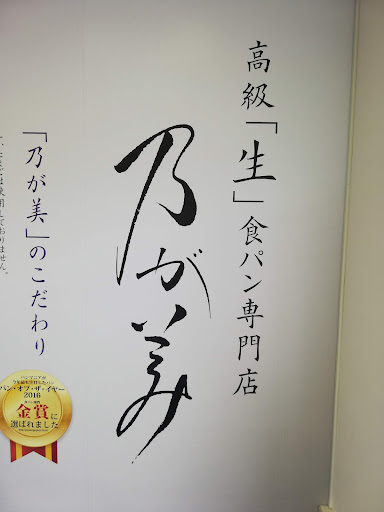 高級「生」食パン専門店
乃が美
「乃が美」のこだわり
は使用しておりません。
パン・オブ・ザ・イヤー
2016
金賞に
選ばれました